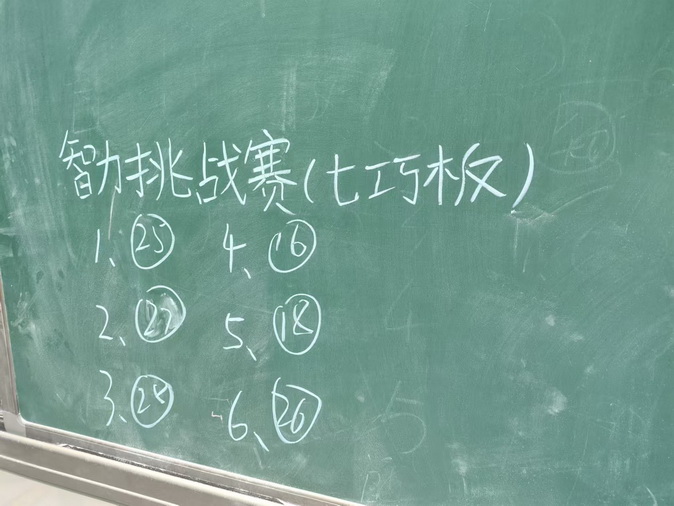 智力挑战赛(七巧板)
1、㉕ 4、⑯
2、㉗ 5、⑱
3、 6、㉖